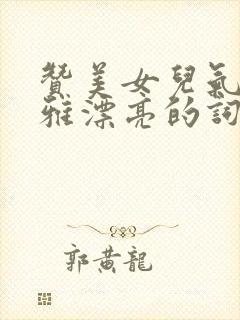 贊美女兒氣
雅漂亮的詞
郭黃龍